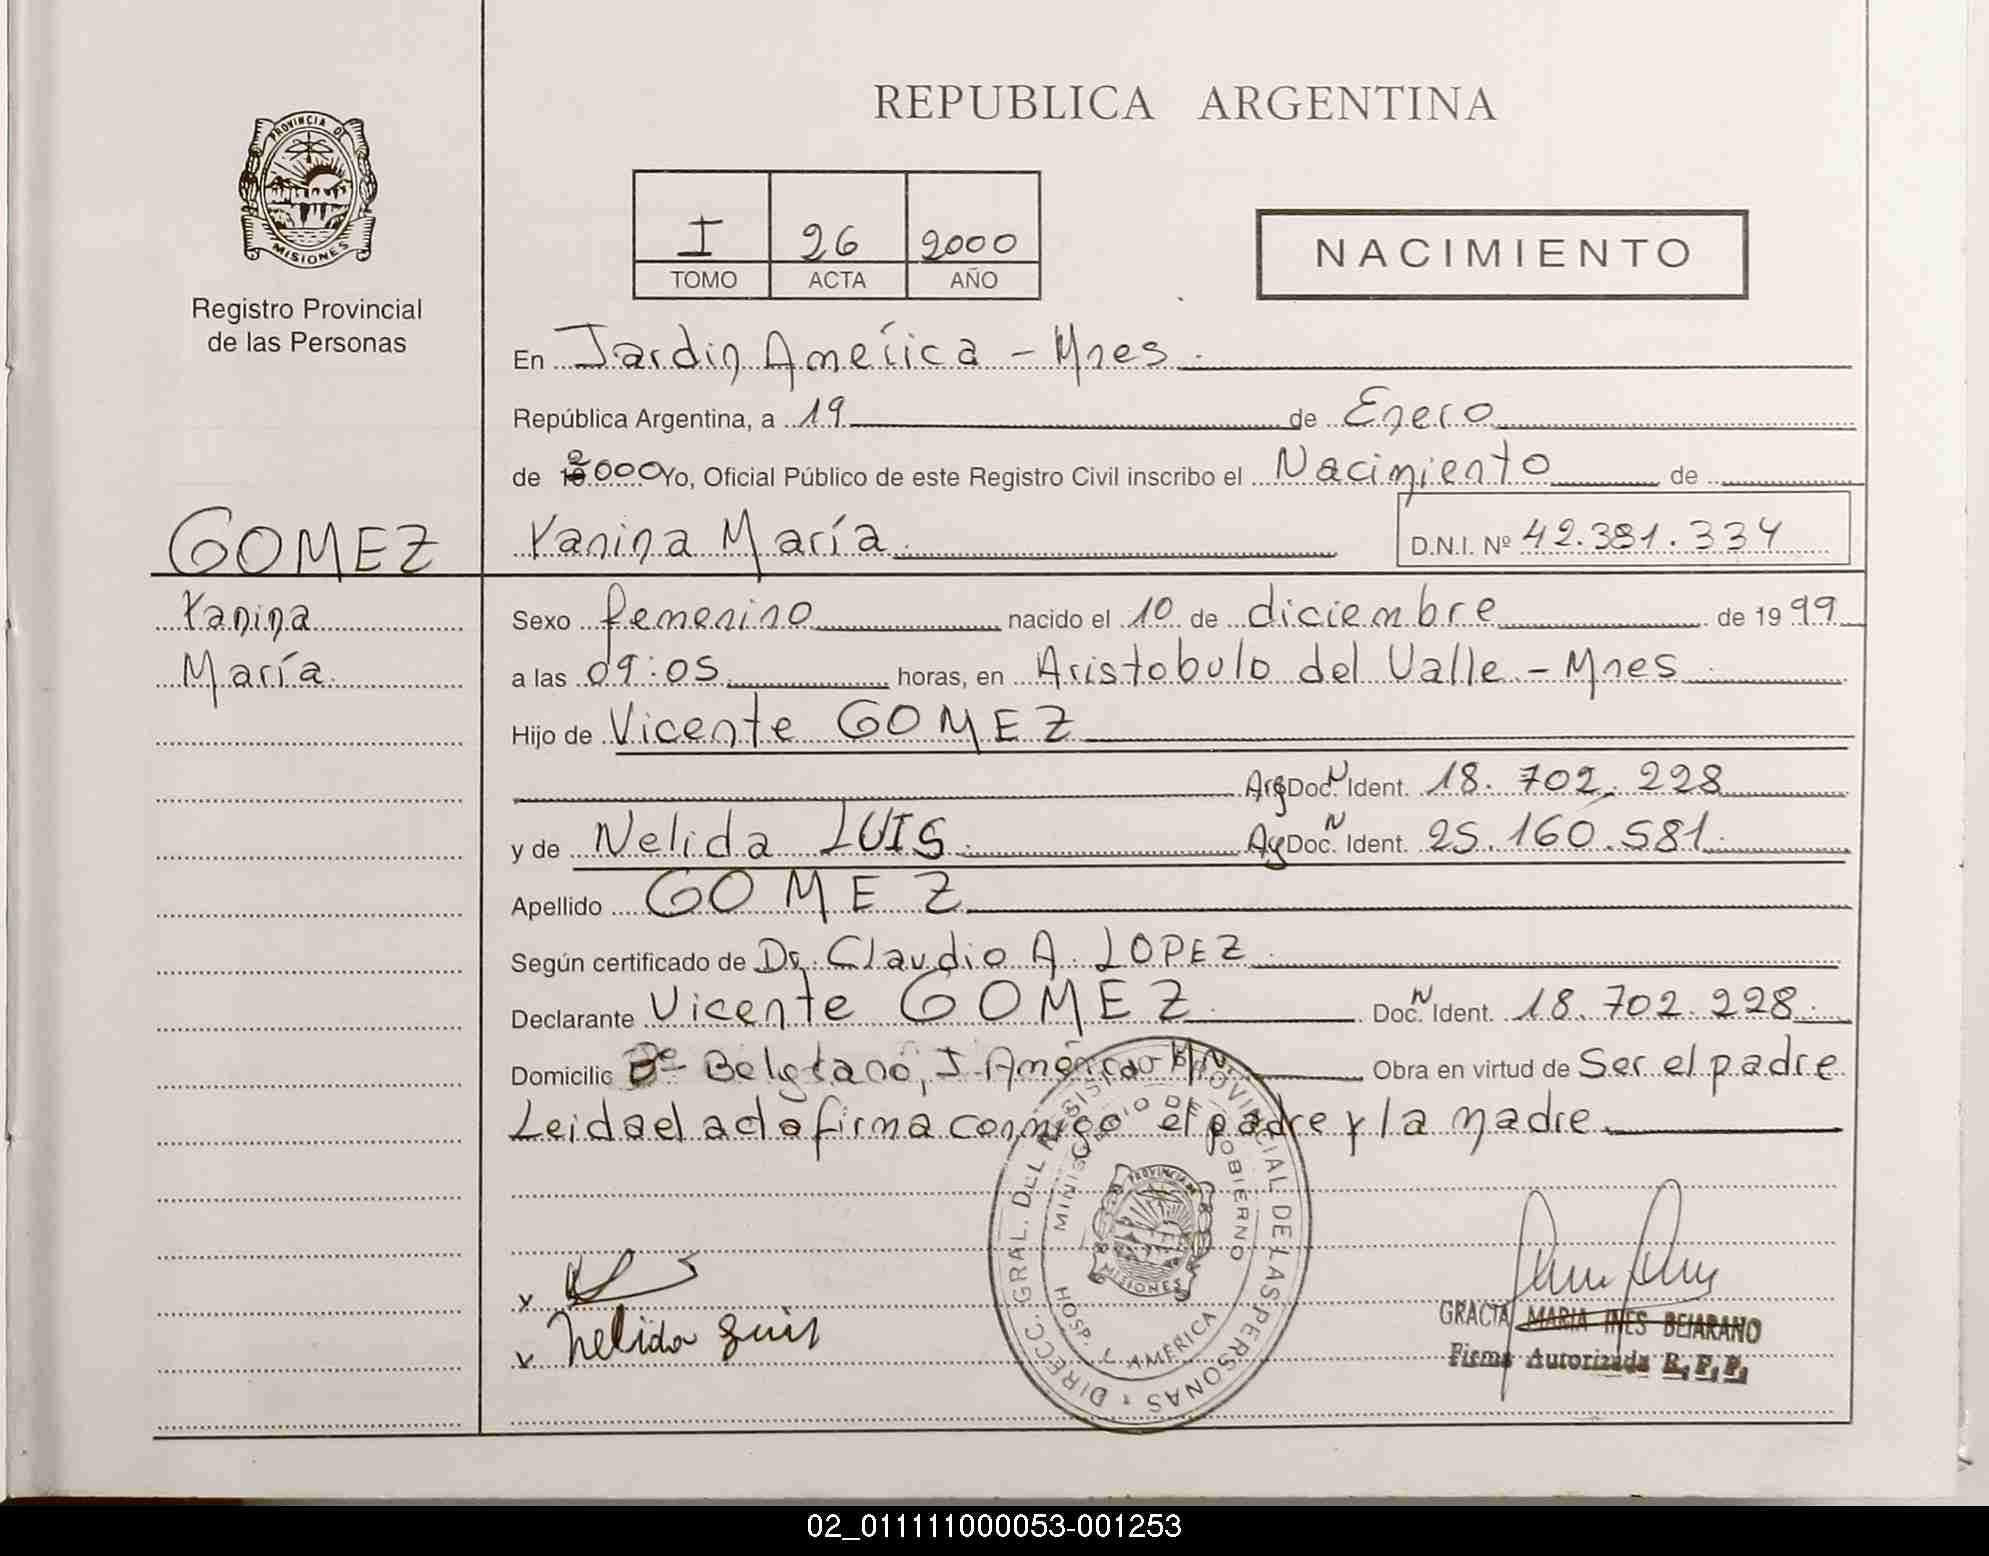 REPUBLICA ARGENTINA
PROVINCIA DE
MISIONES
Registro Provincial
de las Personas
I 26 2000
TOMO ACTA AÑO
NACIMIENTO
En Jardin América - Mnes.
República Argentina, a 19 de Enero
de 2000 Yo, Oficial Público de este Registro Civil inscribo el Nacimiento de
GOMEZ
Yanina María.
D.N.I. Nº 42.381.334
Yanina
María.
Sexo femenino nacido el 10 de diciembre de 1999
a las 09:05 horas, en Aristobulo del Valle - Mnes
Hijo de Vicente GOMEZ
Arg Doc. N Ident. 18.702.228
y de Nelida LUIS. Ag Doc. N Ident. 25.160.581.
Apellido GOMEZ
Según certificado de Dr. Claudio A. LOPEZ
Declarante Vicente GOMEZ Doc. N Ident. 18.702.228.
Domicilio Bº Belgrano, J. América Mn Obra en virtud de Ser el padre
Leida el acta firma conmigo el padre y la madre
DIRECC. GRAL. DEL REGISTRO PROVINCIAL DE LAS PERSONAS
MINISTERIO DE GOBIERNO
PROVINCIA DE
MISIONES
HOSP. AMERICA
x
x Nelida Luis
GRACIA MARIA INES BEJARANO
Firma Autorizada R.P.P.
02_011111000053-001253